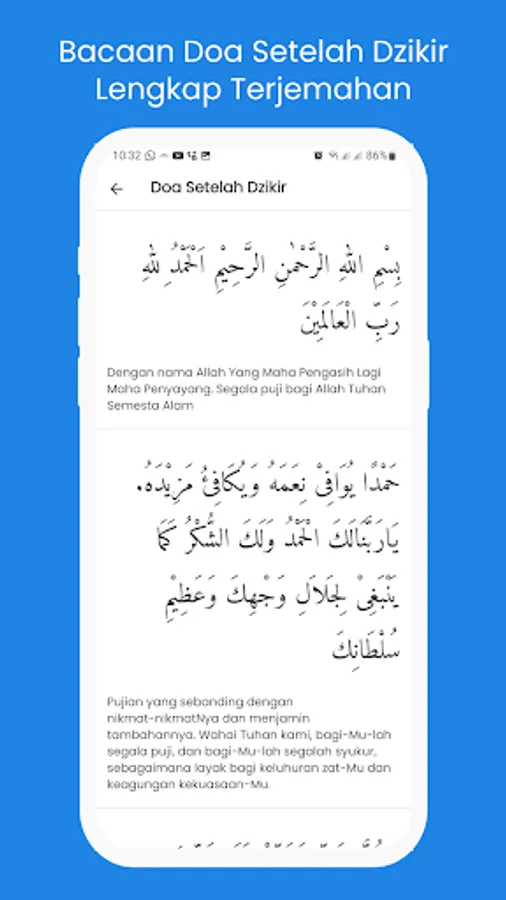 Bacaan Doa Setelah Dzikir
Lengkap Terjemahan
10:32
86%
Doa Setelah Dzikir
بِسْمِ اللهِ الرَّحْمٰنِ الرَّحِيْمِ اَلْحَمْدُ لِلهِ
رَبِّ الْعَالَمِيْنَ
Dengan nama Allah Yang Maha Pengasih Lagi
Maha Penyayang. Segala puji bagi Allah Tuhan
Semesta Alam
حَمْدًا يُوَافِىْ نِعَمَهُ وَيُكَافِئُ مَزِيْدَهُ.
يَارَبَّنَالَكَ الْحَمْدُ وَلَكَ الشُّكْرُ كَمَا
يَنْبَغِىْ لِجَلَالِ وَجْهِكَ وَعَظِيْمِ
سُلْطَانِكَ
Pujian yang sebanding dengan
nikmat-nikmatNya dan menjamin
tambahannya. Wahai Tuhan kami, bagi-Mu-lah
segala puji, dan bagi-Mu-lah segalah syukur,
sebagaimana layak bagi keluhuran zat-Mu dan
keagungan kekuasaan-Mu.